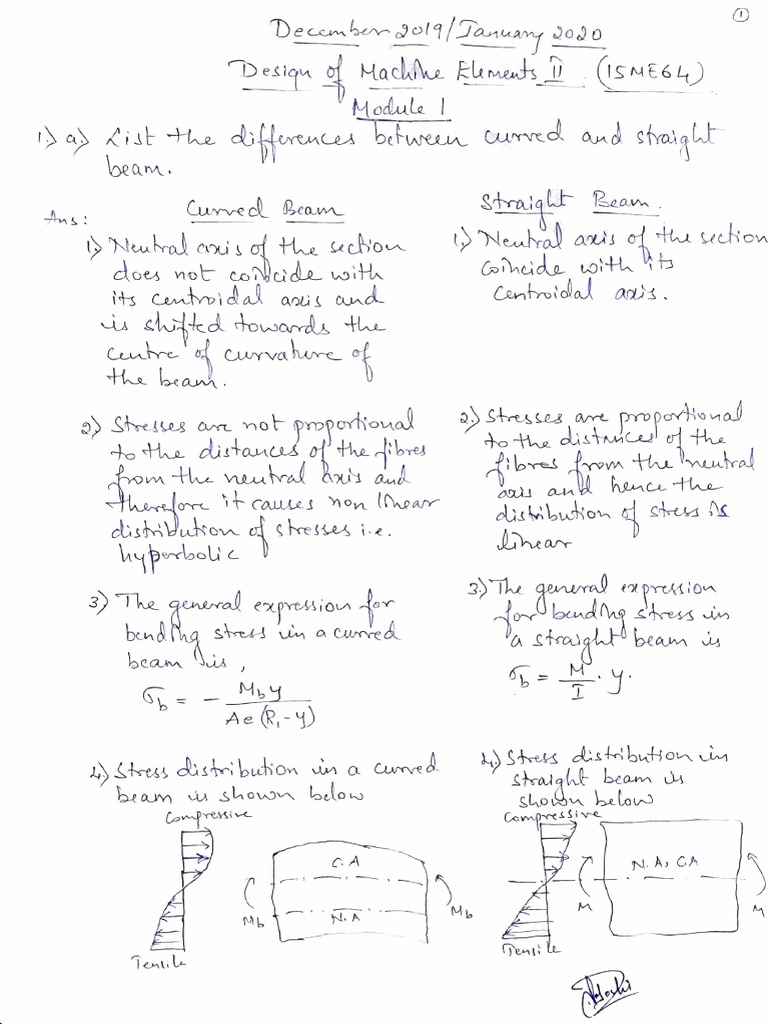 1
December 2019/January 2020
Design of Machine Elements II (15ME64)
Module 1
1.) a.) List the differences between curved and straight
beam.
Ans:
Curved Beam
1.) Neutral axis of the section
does not coincide with
its centroidal axis and
is shifted towards the
centre of curvature of
the beam.
2.) Stresses are not proportional
to the distances of the fibres
from the neutral axis and
therefore it causes non linear
distribution of stresses i.e.
hyperbolic
3.) The general expression for
bending stress in a curved
beam is,
σb = - Mb y / Ae (R1 - y)
4.) Stress distribution in a curved
beam is shown below
Compressive
C.A
N.A
Mb
Mb
Tensile
Straight Beam.
1.) Neutral axis of the section
coincide with its
centroidal axis.
2.) Stresses are proportional
to the distances of the
fibres from the neutral
axis and hence the
distribution of stress is
linear
3.) The general expression
for bending stress in
a straight beam is
σb = M/I . y.
4.) Stress distribution in
straight beam is
shown below
Compressive
N.A, CA
M
M
Tensile